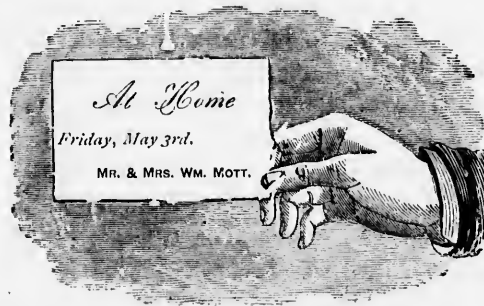 At Home
Friday, May 3rd.
MR. & MRS. WM. MOTT.